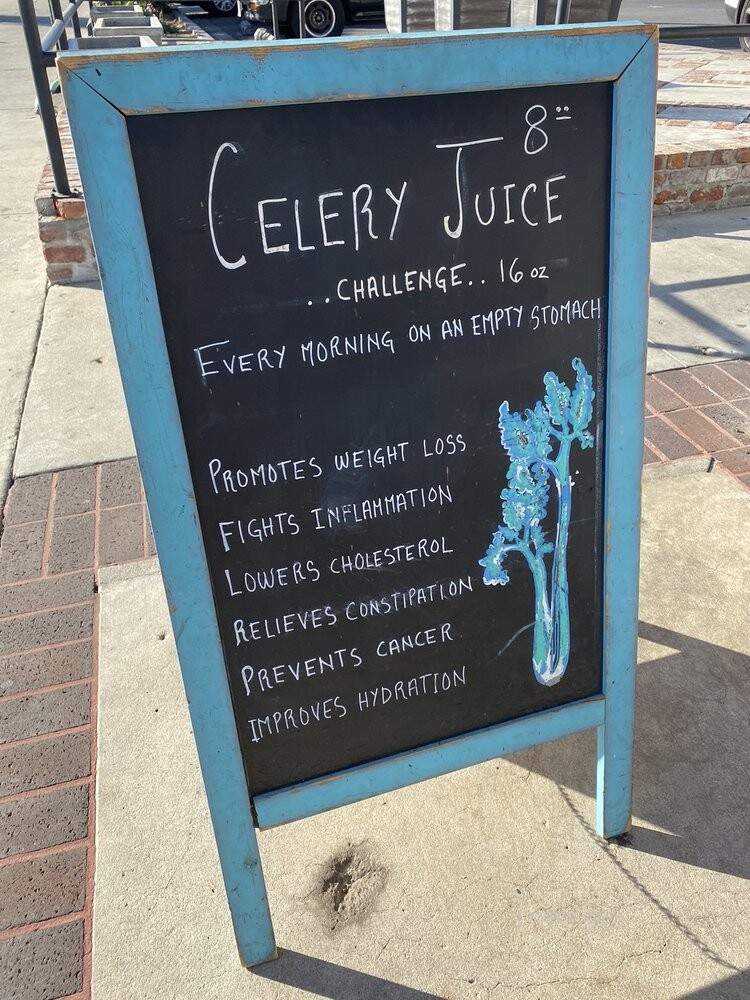 8°°
CELERY JUICE
..CHALLENGE.. 16 oz
EVERY MORNING ON AN EMPTY STOMACH
PROMOTES WEIGHT LOSS
FIGHTS INFLAMMATION
LOWERS CHOLESTEROL
RELIEVES CONSTIPATION
PREVENTS CANCER
IMPROVES HYDRATION